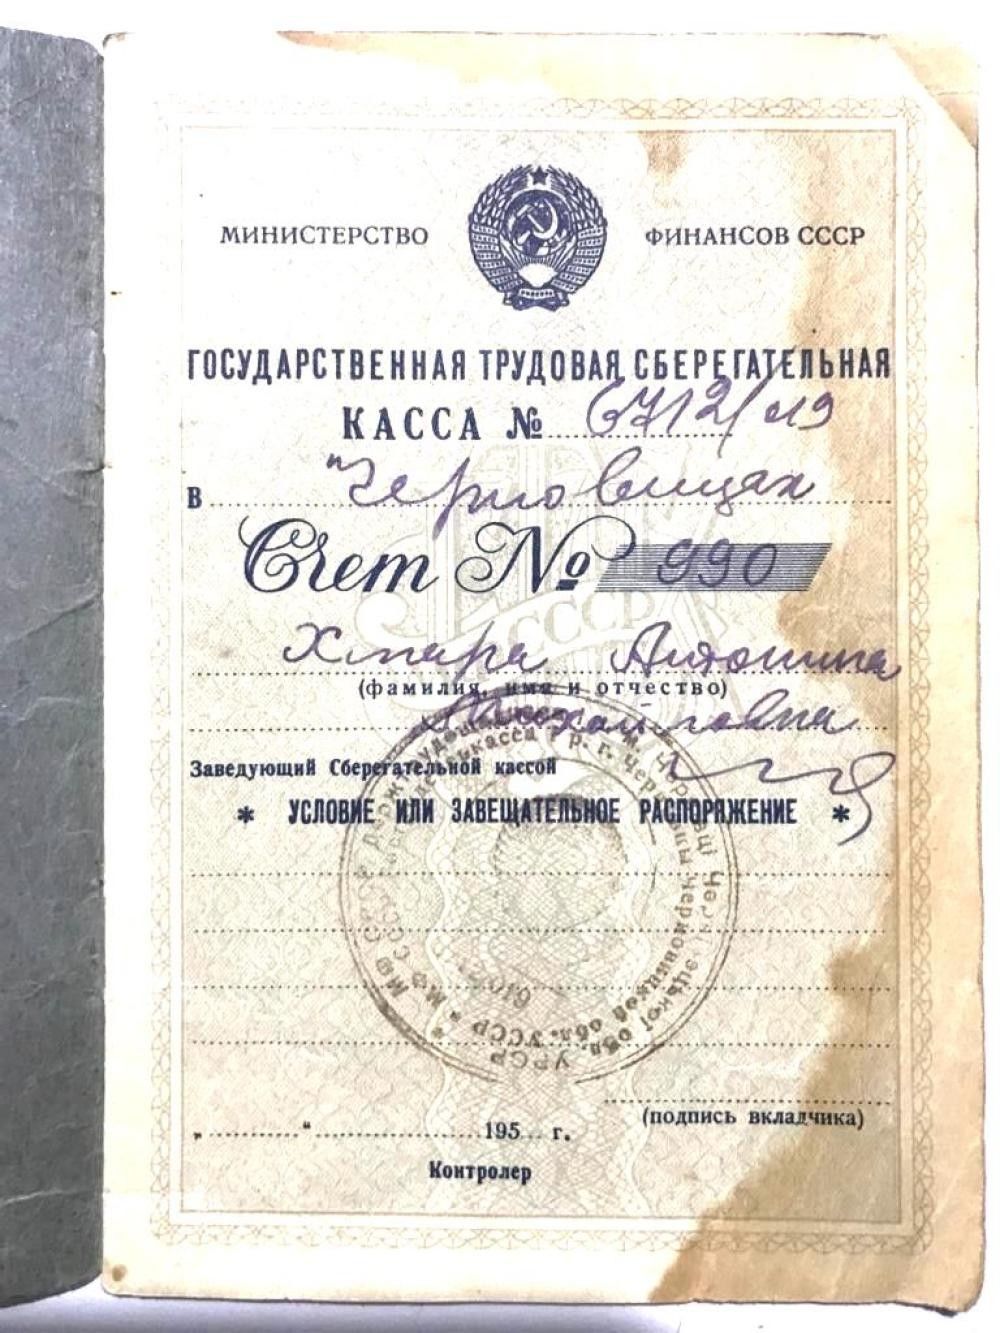 МИНИСТЕРСТВО ФИНАНСОВ СССР
ГОСУДАРСТВЕННАЯ ТРУДОВАЯ СБЕРЕГАТЕЛЬНАЯ
КАССА № 6712/019
в Черновицах
Счет № 990
СССР
Хмара Антонина
(фамилия, имя и отчество)
Михайловна
Заведующий Сберегательной кассой
* УСЛОВИЕ ИЛИ ЗАВЕЩАТЕЛЬНОЕ РАСПОРЯЖЕНИЕ *
УРСР * МФ СССР
обл. УССР * МФ СССР
(подпись вкладчика)
„ “ 195 г.
Контролер